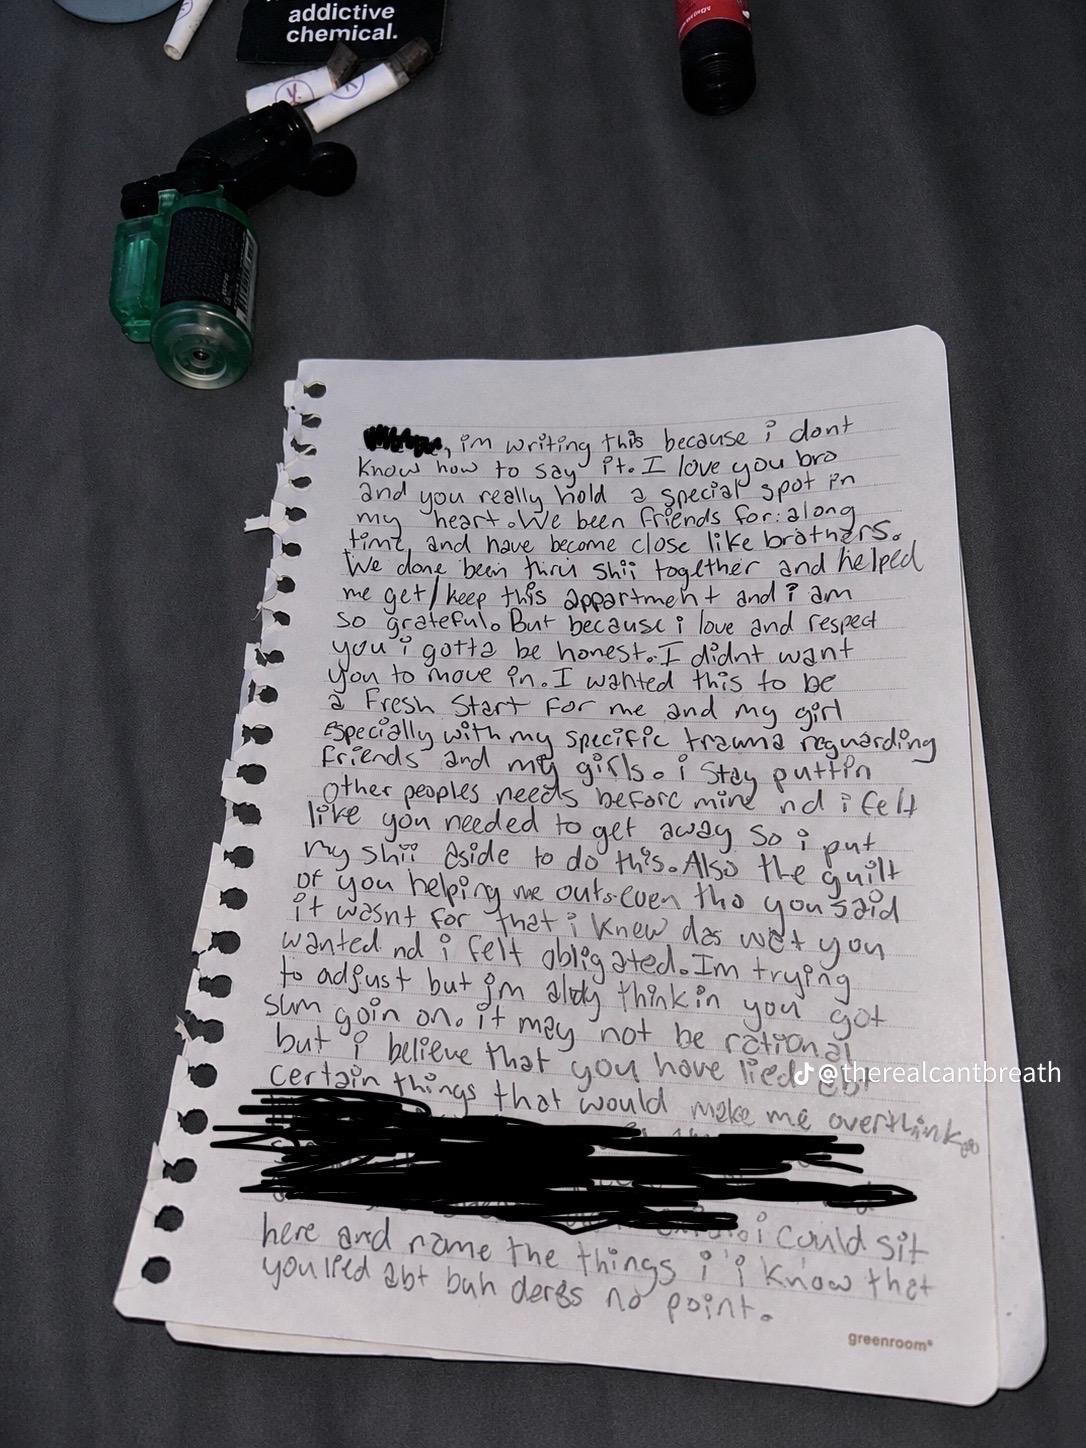 addictive
chemical.
, im writing this because i dont
know how to say it. I love you bro
and you really hold a special spot in
my heart. We been friends for along
time, and have become close like brothers.
We done been thru shii together and helped
me get/keep this appartment and i am
so grateful. But because i love and respect
you i gotta be honest. I didnt want
you to move in. I wanted this to be
a Fresh Start for me and my girl
especially with my specific trauma reguarding
friends and my girls. i stay puttin
other peoples needs before mine nd i felt
like you needed to get away so i put
my shii aside to do this. Also the guilt
of you helping me out. even tho you said
it wasnt for that i knew das wat you
wanted nd i felt obligated. Im trying
to adjust but im alrdy thinkin you got
sum goin on. it may not be rational
but i believe that you have lied abt
@therealcantbreath
certain things that would make me overthink.
i could sit
here and name the things i i know that
you lied abt buh deres no point.
greenroom